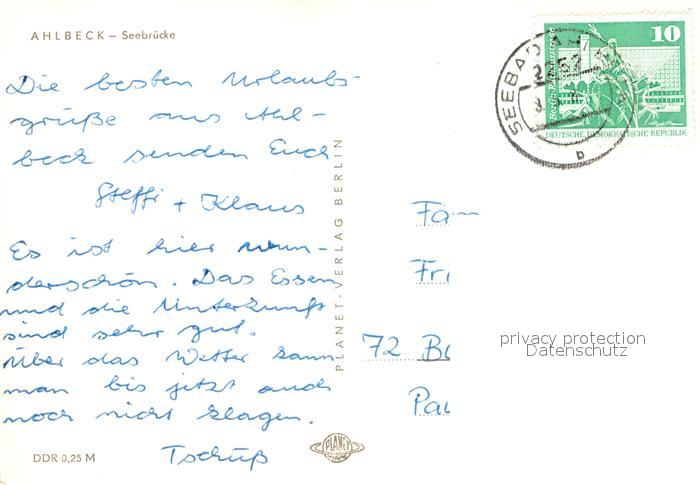 AHLBECK – Seebrücke
Die besten Urlaubs-
grüße aus Ahl-
beck senden Euch
Steffi + Klaus
Es ist hier wun-
derschön. Das Essen
und die Unterkunft
sind sehr gut.
Über das Wetter kann
man bis jetzt auch
noch nicht klagen.
Tschüß
DDR 0,25 M
PLANET-VERLAG BERLIN
PLANET
SEEBAD AH
b
10
DEUTSCHE DEMOKRATISCHE REPUBLIK
Fam
Fri
72 Bo
Pau
privacy protection
Datenschutz